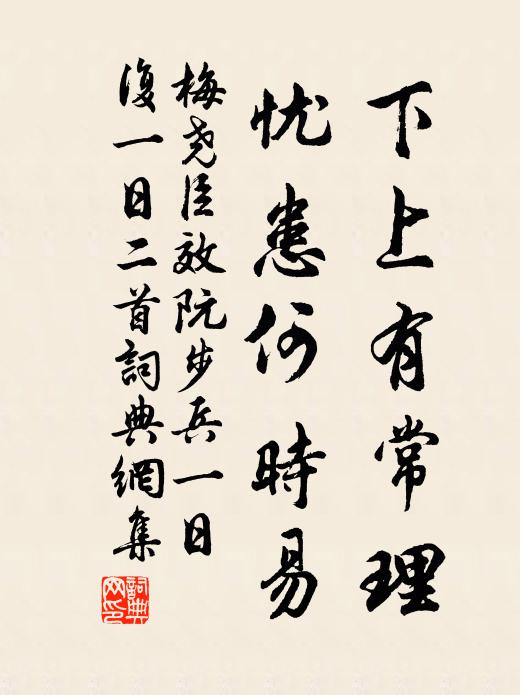 下上有常理
忧患何時易
梅尧臣效阮步兵一日
復一日二首詞典網集
詞典網印